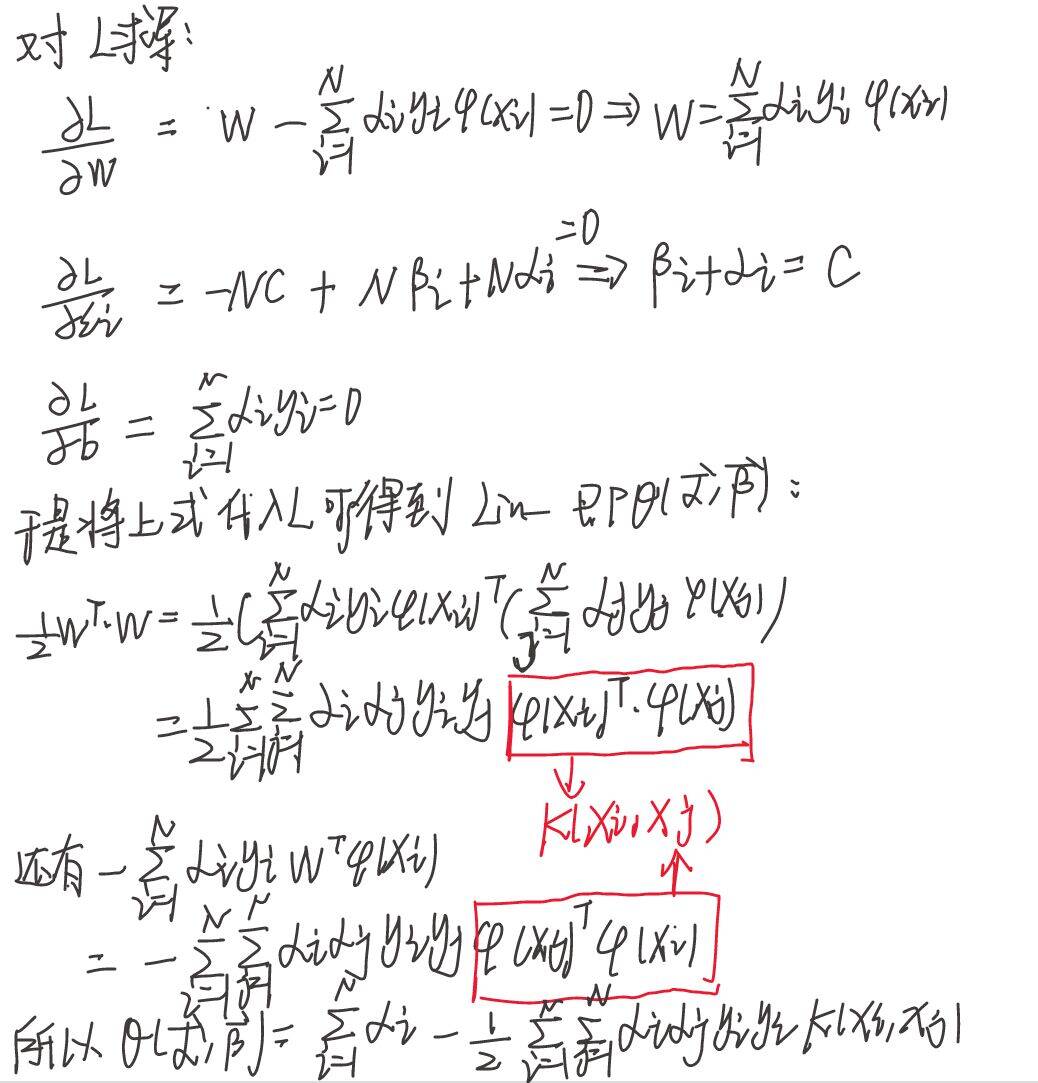 对 L求导:
∂L/∂W = W - ∑_{i=1}^{N} αi yi φ(xi) = 0 ⇒ W = ∑_{i=1}^{N} αi yi φ(xi)
∂L/∂ξi = -NC + Nβi + Nαi =0 ⇒ βi + αi = C
∂L/∂b = ∑_{i=1}^{N} αi yi = 0
于是将上式代入L 可得到 Lin 即θ(α⃗, β⃗):
1/2 W^T·W = 1/2 (∑_{i=1}^{N} αi yi φ(xi))^T (∑_{j=1}^{N} αj yj φ(xj))
= 1/2 ∑_{i=1}^{N} ∑_{j=1}^{N} αi αj yi yj φ(xi)^T·φ(xj)
↓
K(xi, xj)
还有 - ∑_{i=1}^{N} αi yi W^T φ(xi)
↑
= - ∑_{i=1}^{N} ∑_{j=1}^{N} αi αj yi yj φ(xj)^T φ(xi)
所以 θ(α⃗, β⃗) = ∑_{i=1}^{N} αi - 1/2 ∑_{i=1}^{N} ∑_{j=1}^{N} αi αj yi yi K(xi, xj)